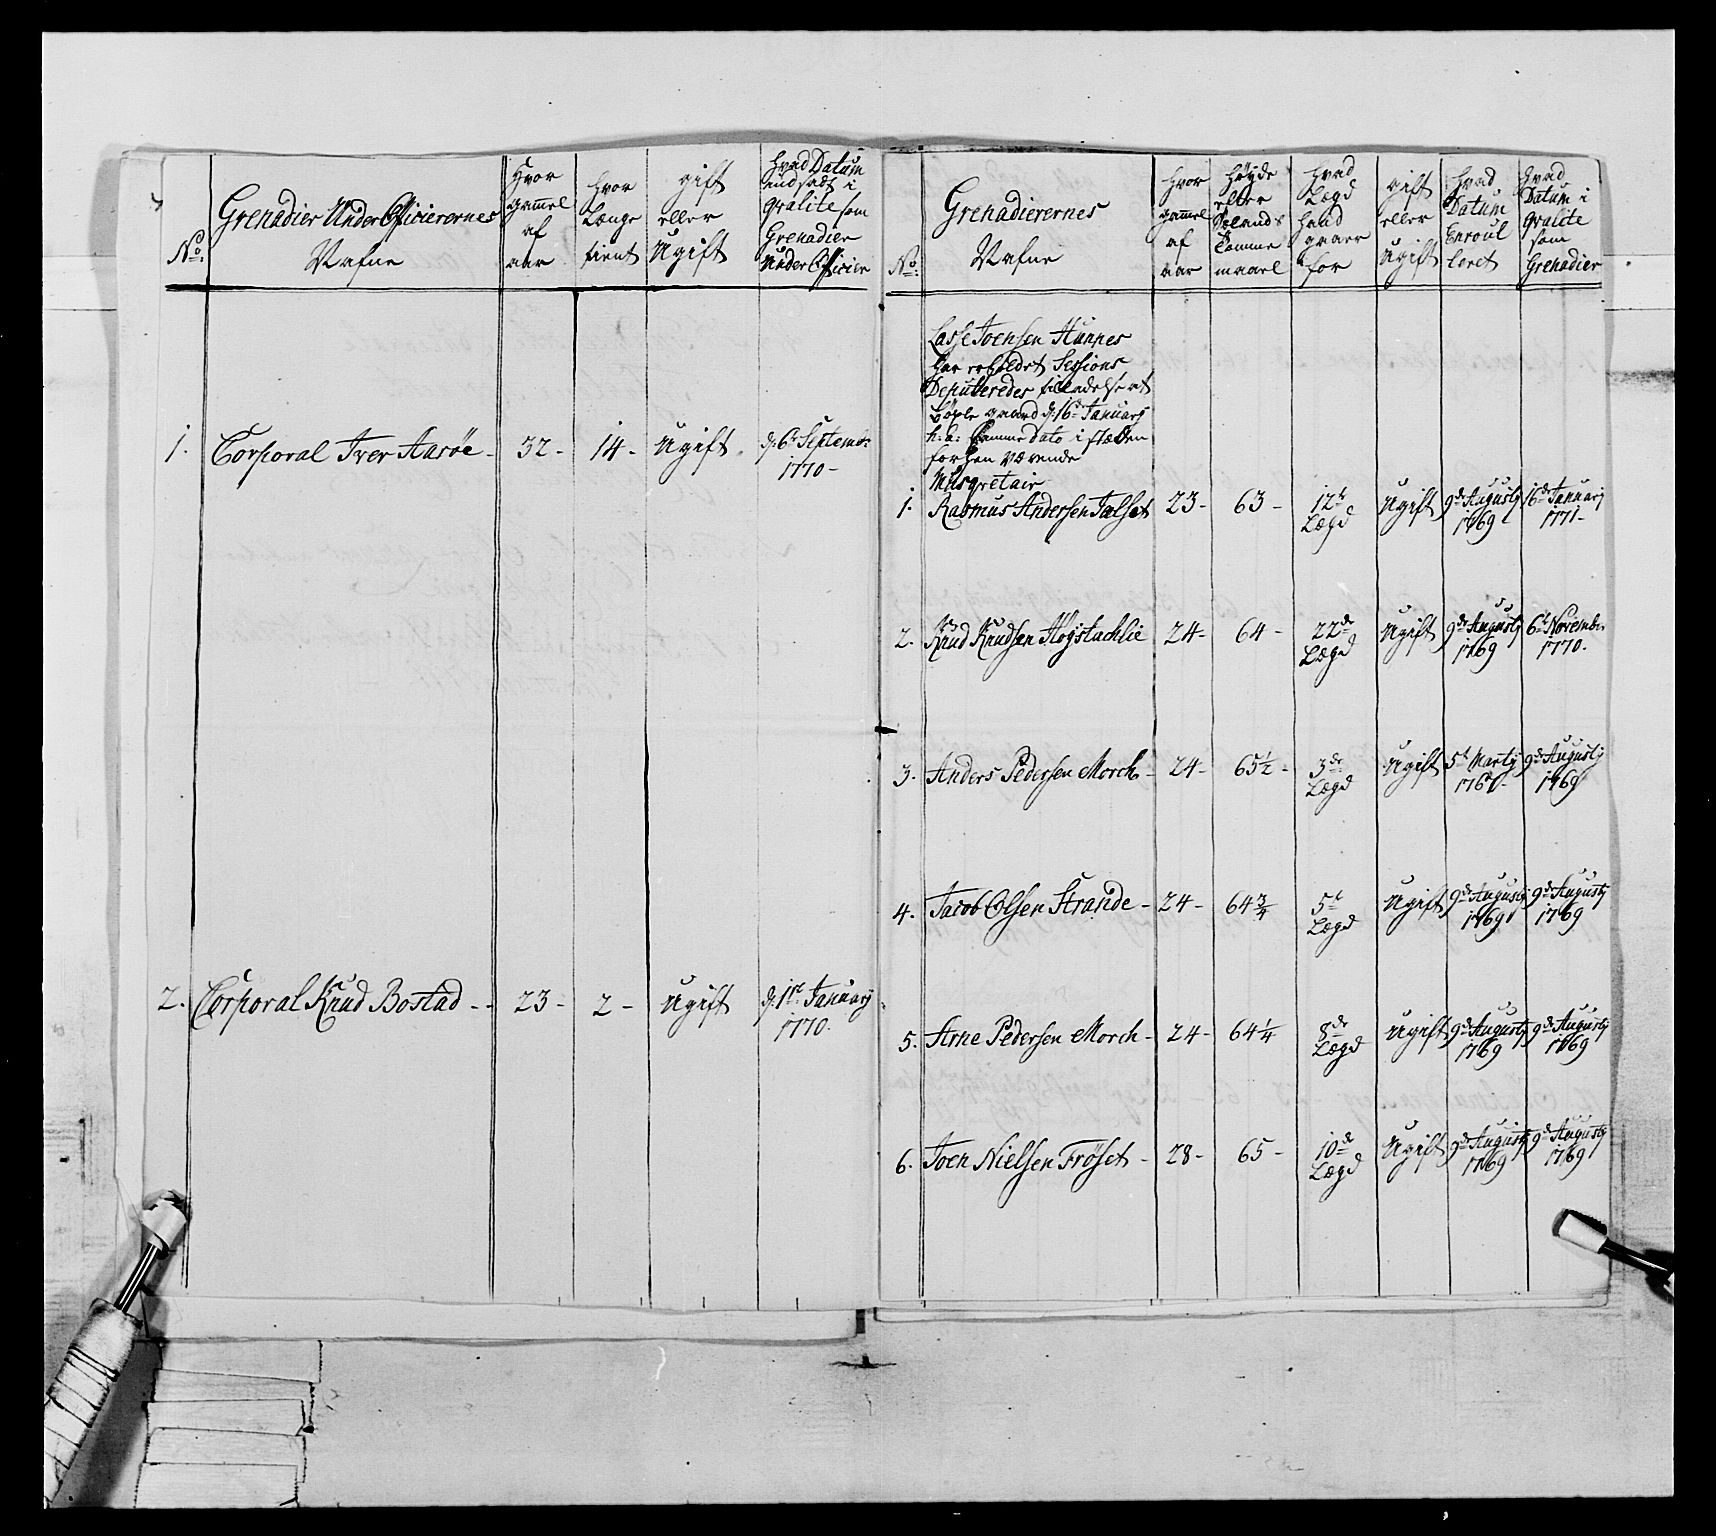 No.
Grenadier Under Officierernes
Nafne
Hvor
gammel
af
aar
Hvor
Længe
tient
gift
eller
Ugift
Hvad Datum
indsadt i
qvalite som
Grenadier
Under Officier
1. Corporal Iver Aarøe - 32 - 14 - Ugift d: 6t Septembr: 1770 -
2. Corporal Knud Bostad - - 23 - 2 - Ugift d: 1te Januarij 1770.
No.
Grenadierernes
Nafne
Hvor
gammel
af
aar
Høyde
efter
Sælands
Tomme
maael
Hvad
Lægd
hand
gaaer
for
gift
eller
Ugift
Hvad
Datum
Enroul
leret
Hvad
Datum i
qvalite
som
Grenadier
Lasse Joensen Hunnes
har erholdet Sessions
Deputeredes tilladelse at
Kiøbe gaard d: 16de Januarij
h: a: Samme Dato i stæden
forhen værende
Musqvetair
1. Rasmus Andersen Talset 23 - 63 - 12te Lægd Ugift 9de Augusty 1769 16de Januarij 1771 -
2. Knud Knudsen Høgstachlie 24 - 64 - 22de Lægd Ugift 9de Augusty 1769 6t Novembr 1770.
3. Anders Pedersen Morch - 24 - 65½ - 3de Lægd Ugift 5t Martij 1767 - 9de Augustij 1769
4. Jacob Olsen Strande - 24 - 64¾ 5t Lægd Ugift 9de Augustij 1769 9de Augustij 1769
5. Arne Pedersen Morch - 24 - 64¼ 8de Lægd Ugift 9de Augustij 1769 9de Augustij 1769
6. Joen Nielsen Frøset - 28 - 65 - 10de Lægd Ugift 9de Augustij 1769 9de Augustij 1769